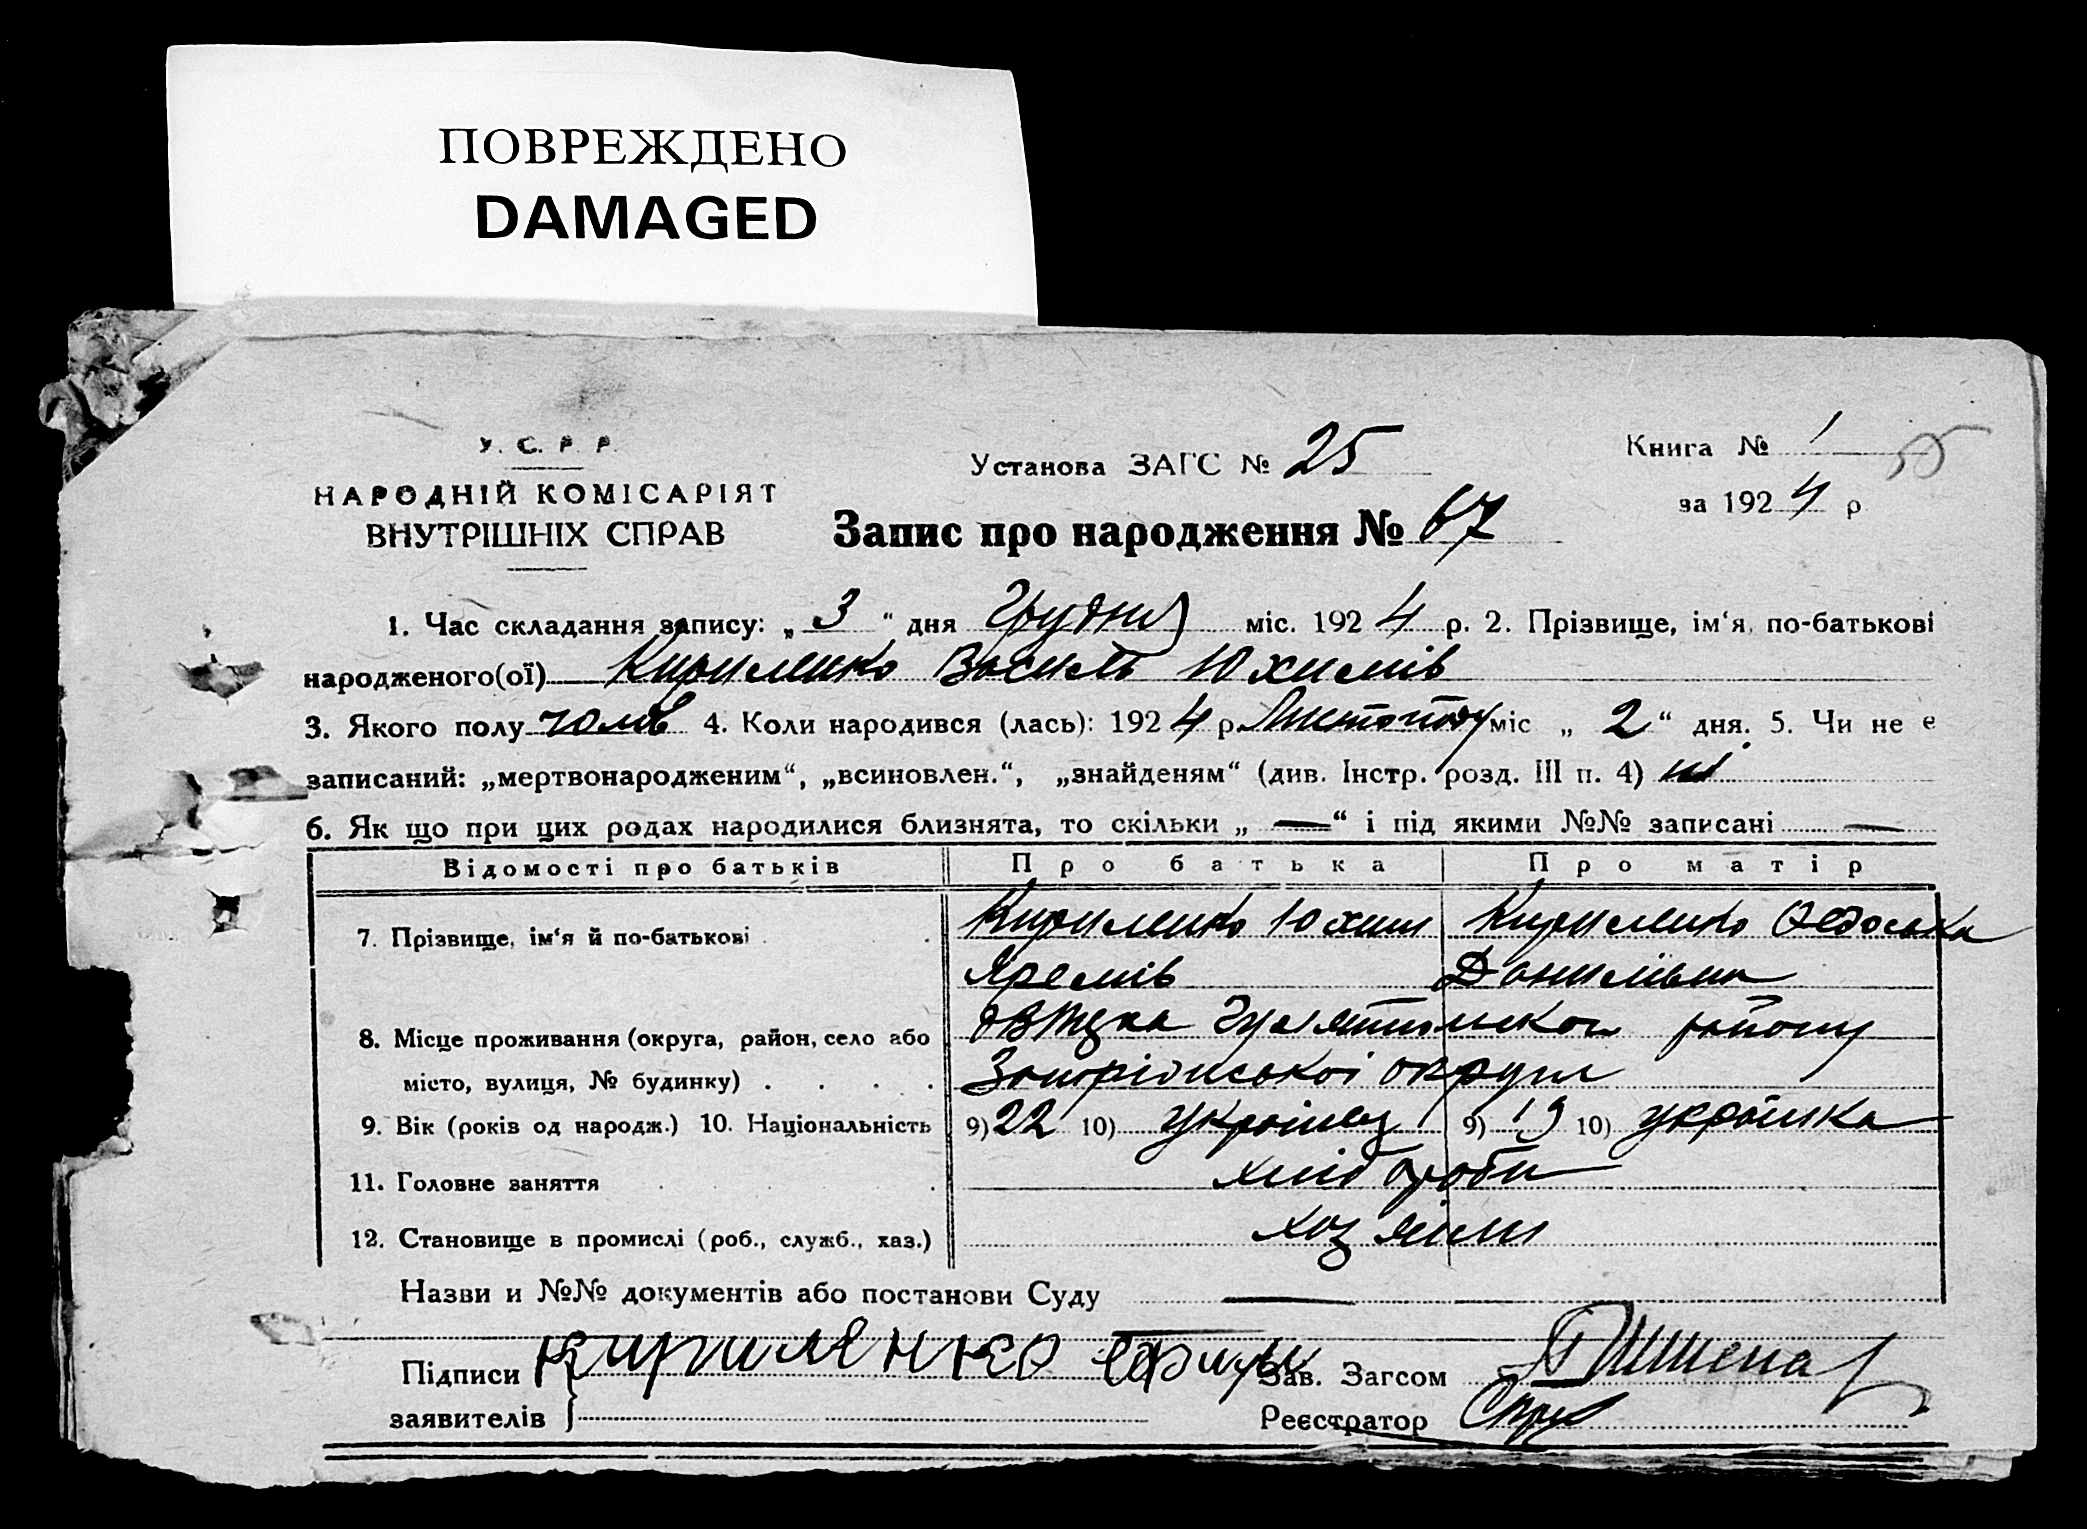 ПОВРЕЖДЕНО
DAMAGED
У. С. Р. Р.
НАРОДНІЙ КОМІСАРІЯТ
ВНУТРІШНІХ СПРАВ
Установа ЗАГС № 25
Книга № 1
за 1924 р
Запис про народження № 67
1. Час складання запису: „ 3 “ дня Грудня міс. 1924 р. 2. Прізвище, ім‘я, по-батькові
народженого(ої) Кириленко Василь Юхимів
3. Якого полу чолов 4. Коли народився (лась): 1924 р. Листопаду міс „ 2 “ дня. 5. Чи не є
записаний: „мертвонародженим“, „всиновлен.“, „знайденям“ (див. Інстр. розд. III п. 4) ні
6. Як що при цих родах народилися близнята, то скільки „ — “ і під якими №№ записані —
Відомості про батьків Про батька Про матір
7. Прізвище, ім‘я й по-батькові Кириленко Юхим Кириленко Федоська
Яремів Данилівна
8. Місце проживання (округа, район, село або району
місто, вулиця, № будинку) Запоріжської округи
9. Вік (років од народж.) 10. Національність 9) 22 10) українец 9) 19 10) українка
11. Головне заняття хліборoби
12. Становище в промислі (роб., служб., хаз.) хозяїни
Назви и №№ документів або постанови Суду —
Підписи Кириленко Ефим Зав. Загсом
заявителів Реєстратор